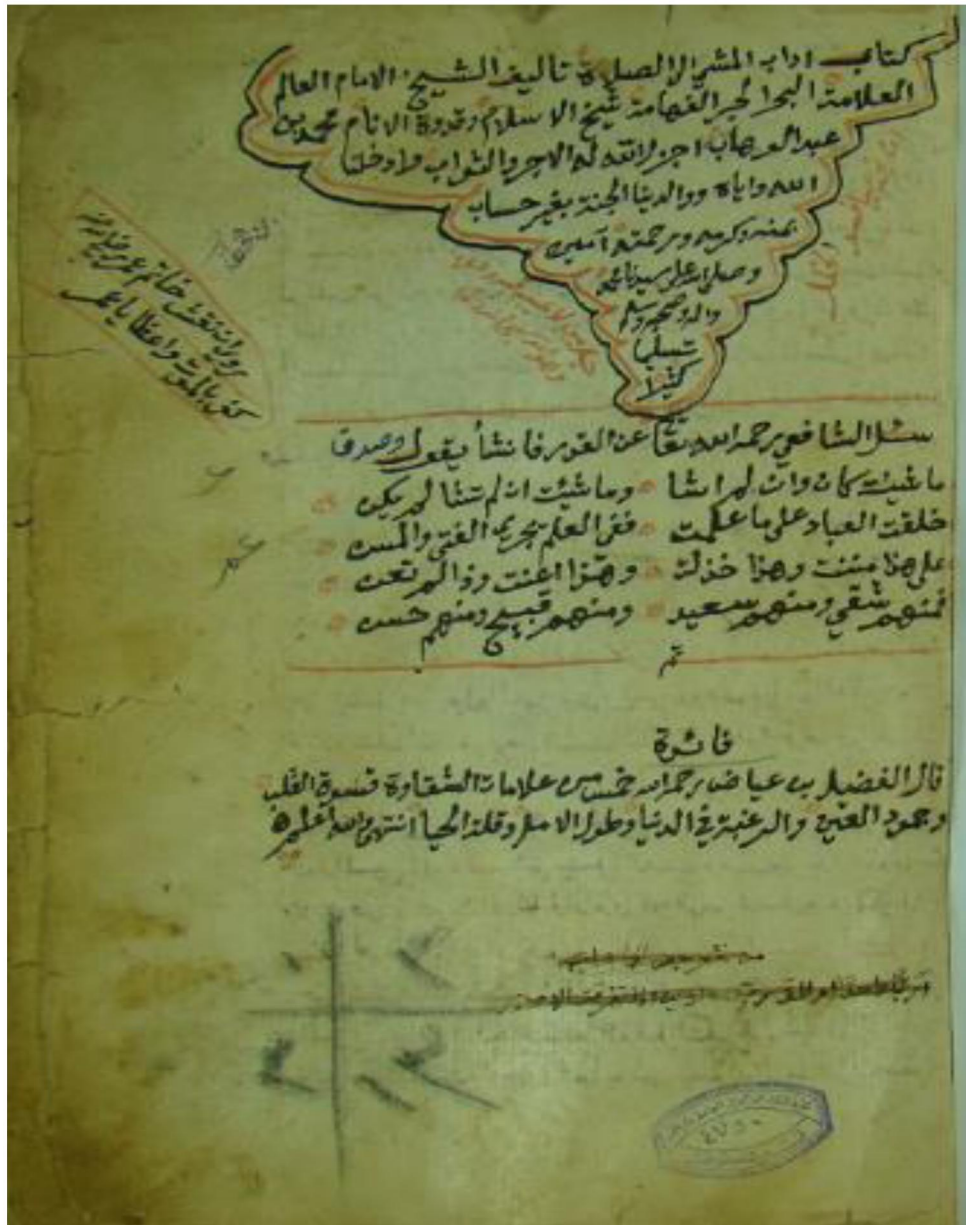 كتاب اداب المشي الى الصلاة تاليف الشيخ الامام العالم
العلامة البحر الحبر الفهامة شيخ الاسلام وقدوة الانام محمد بن
عبد الوهاب اجزل الله له الاجر والثواب وادخلنا
الله واياه ووالدينا الجنة بغير حساب
بمنه وكرمه ورحمته آمين
وصلى الله على سيدنا محمد
واله وصحبه وسلم
تسليما
كثيرا
روي ان نقش خاتم عمر رضي الله عنه
كفى بالموت واعظا يا عمر
سئل الشافعي رحمه الله تعا عن القدر فانشأ يقول وصدق
ما شئت كان وان لم اشا وما شئت ان لم تشا لم يكن
خلقت العباد على ما علمت ففي العلم يجري الفتى والمسن
على هذا مننت وهذا خذلت وهذا اعنت وذا لم تعن
فمنهم شقي ومنهم سعيد ومنهم قبيح ومنهم حسن
تم
فائدة
قال الفضيل بن عياض رحمه الله خمس من علامات الشقاوة قسوة القلب
وجمود العين والرغبة في الدنيا وطول الامل وقلة الحيا انتهى والله اعلم